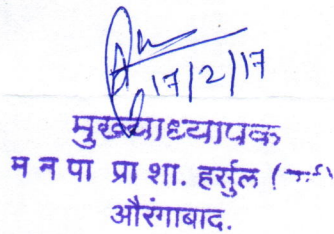 17/2/17
मुख्याध्यापक
म न पा प्रा शा. हर्सुल (
औरंगाबाद.